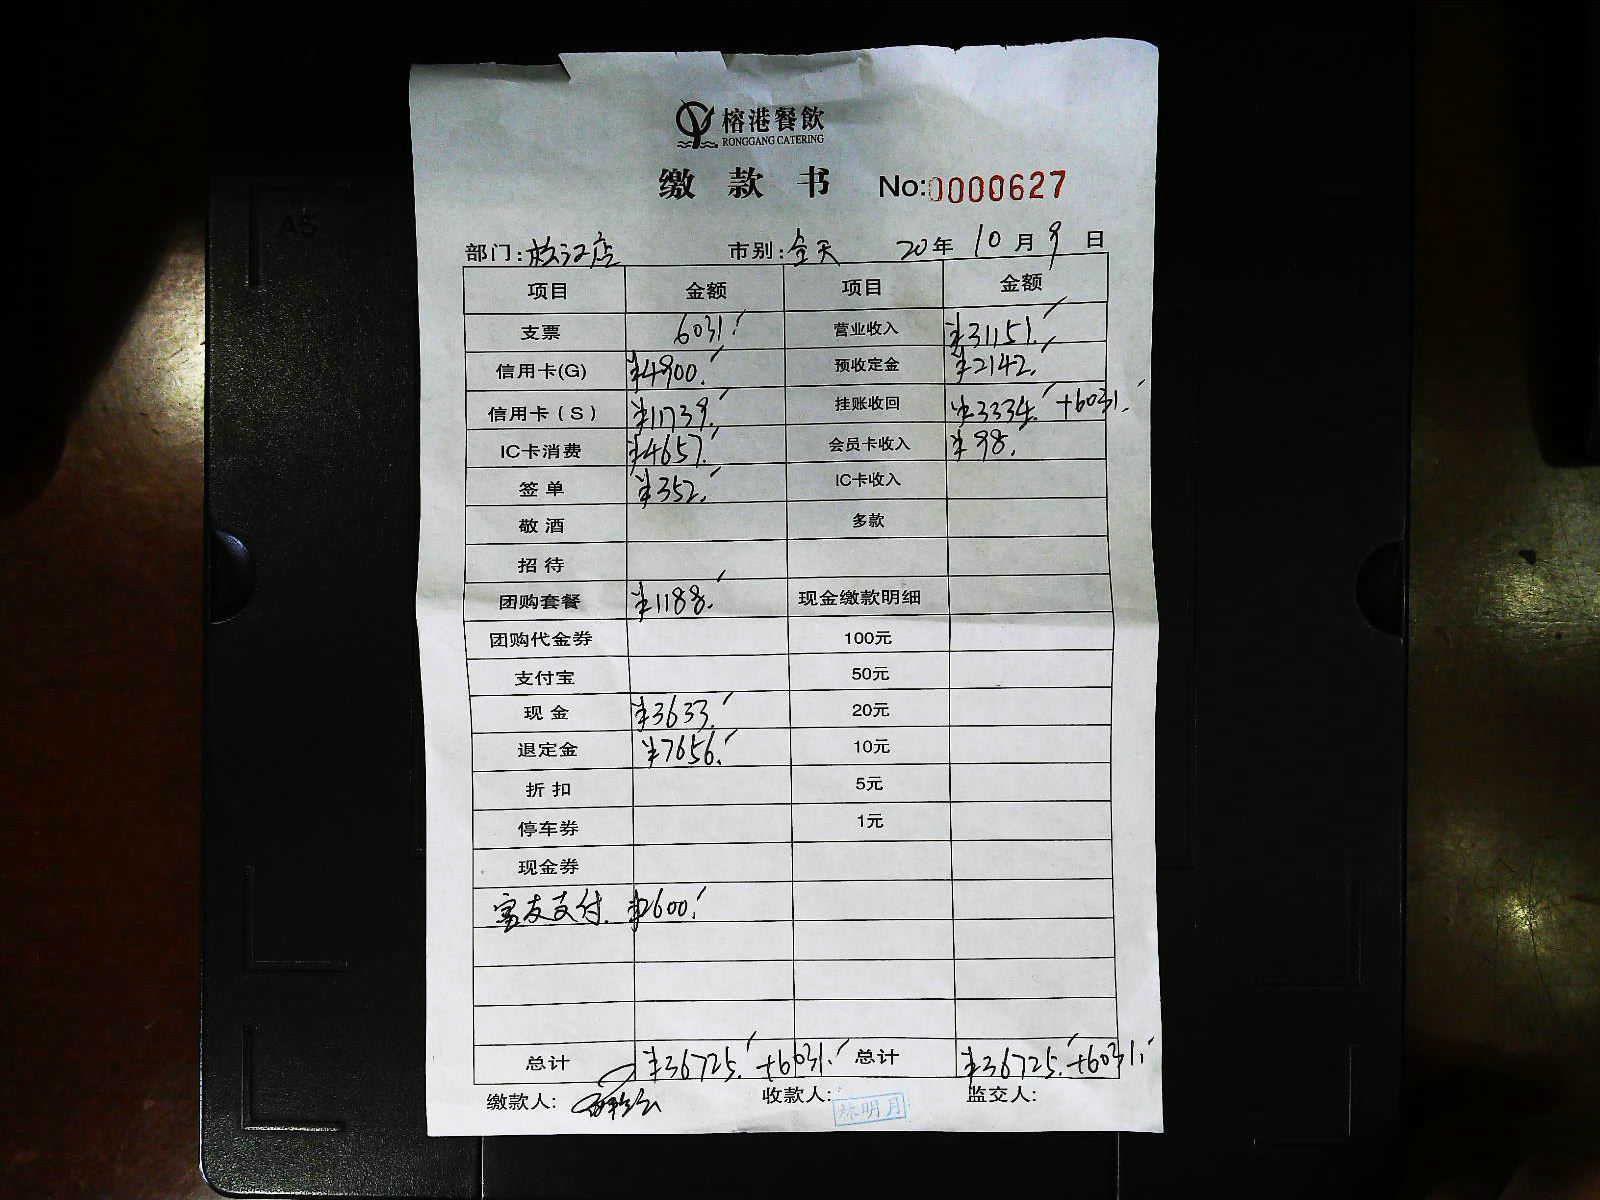 榕港餐飲
RONGGANG CATERING
缴款书 No:0000627
部门:松江店 市别:全天 20年10月9日
项目 金额 项目 金额
支票 6031. 营业收入 ¥31151.
信用卡(G) ¥4900. 预收定金 ¥2142.
信用卡(S) ¥11739. 挂账收回 ¥3334. +6031.
IC卡消费 ¥4657. 会员卡收入 ¥98.
签单 ¥352. IC卡收入
敬酒 多款
招待
团购套餐 ¥1188. 现金缴款明细
团购代金券 100元
支付宝 50元
现金 ¥3633. 20元
退定金 ¥7656. 10元
折扣 5元
停车券 1元
现金券
支付. ¥2600.
总计 ¥36725. +6031. 总计 ¥36725. +6031.
缴款人: 收款人: 林明月 监交人:
A5